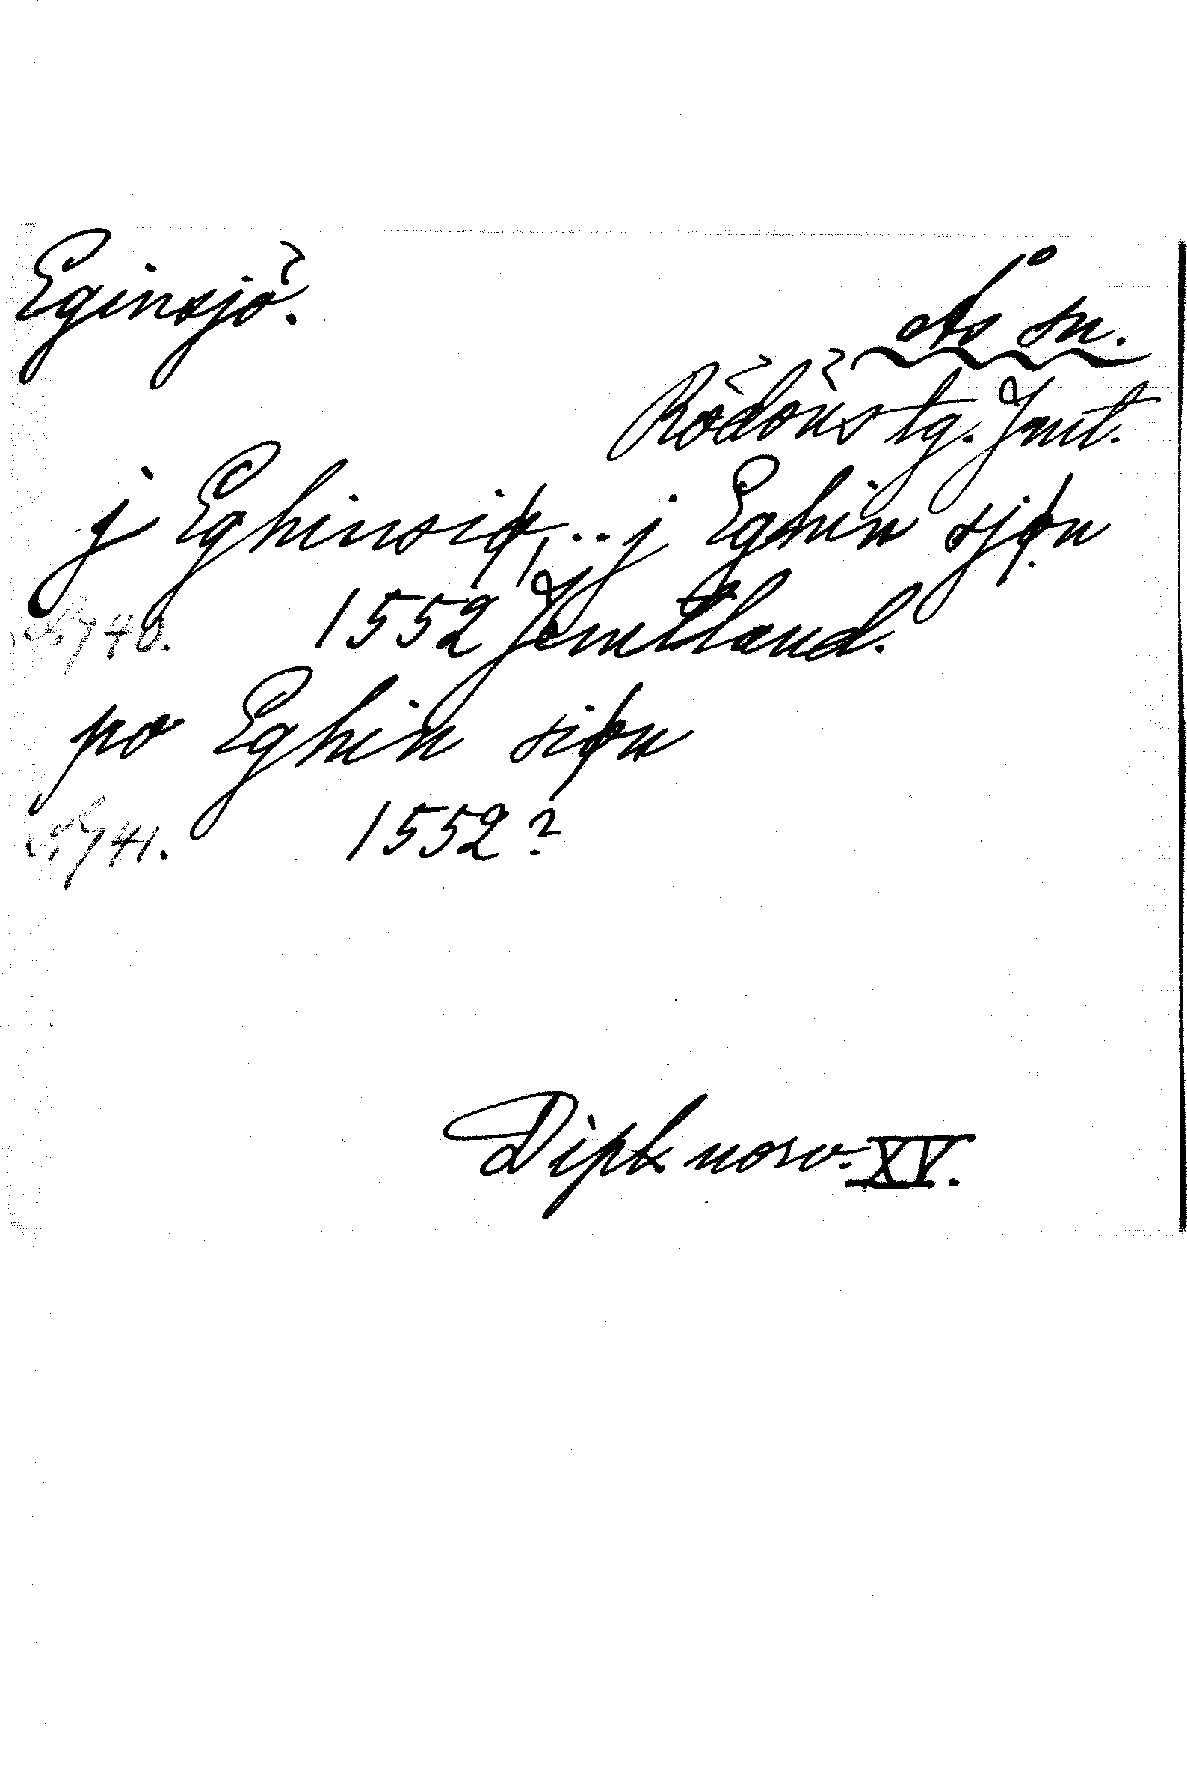 Eginsjö.
Ås sn.
Rödöns tg. Jmt.
j Eghinsiø, ... j Eghin sjøn
S. 740. 1552 Jemtland.
po Eghin siøn
S. 741. 1552?
Dipl. norv. XV.